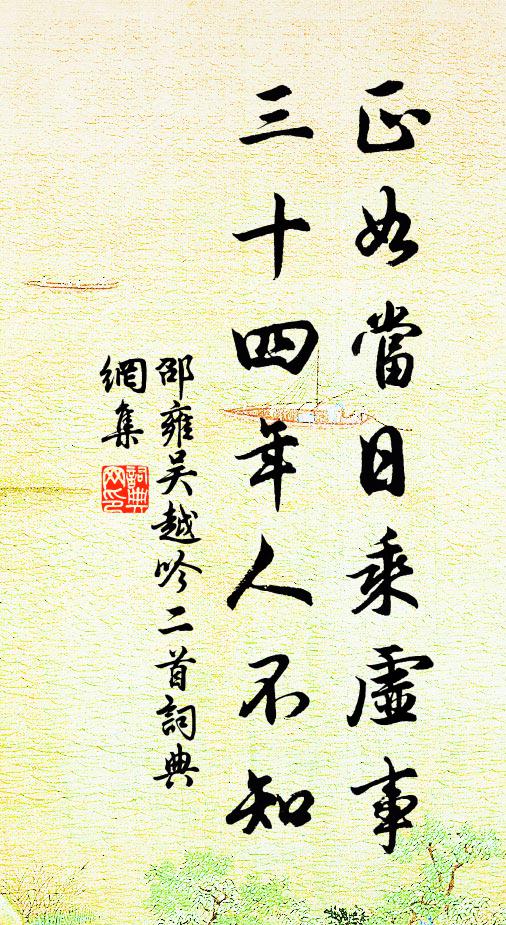 正如當日乘虛事
三十四年人不知
邵雍吴越吟二首詞典
網集
詞典
网印